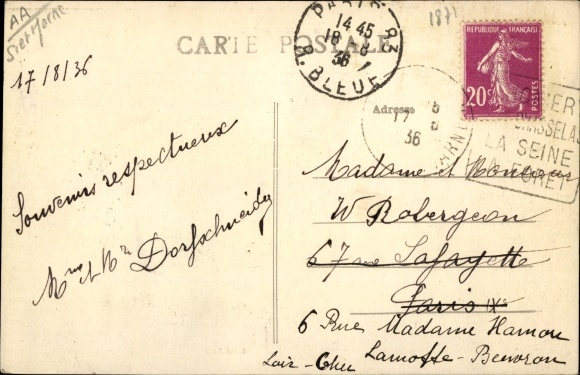 AA
Set Marne
1871
CARTE POSTALE
PARIS 83
14 45
18 8
36
R. BLEUE
REPUBLIQUE FRANÇAISE
20c
POSTES
17/8/36
Adresse
17 8
36
LA SEINE
LA FORET
Souvenirs respectueux
Mme et Mr Dorfschneider
Madame et Monsieur
W Robergeon
67 rue Lafayette
Paris IXe
6 Rue Madame Hamon
Lamotte-Beuvron
Loir-Cher